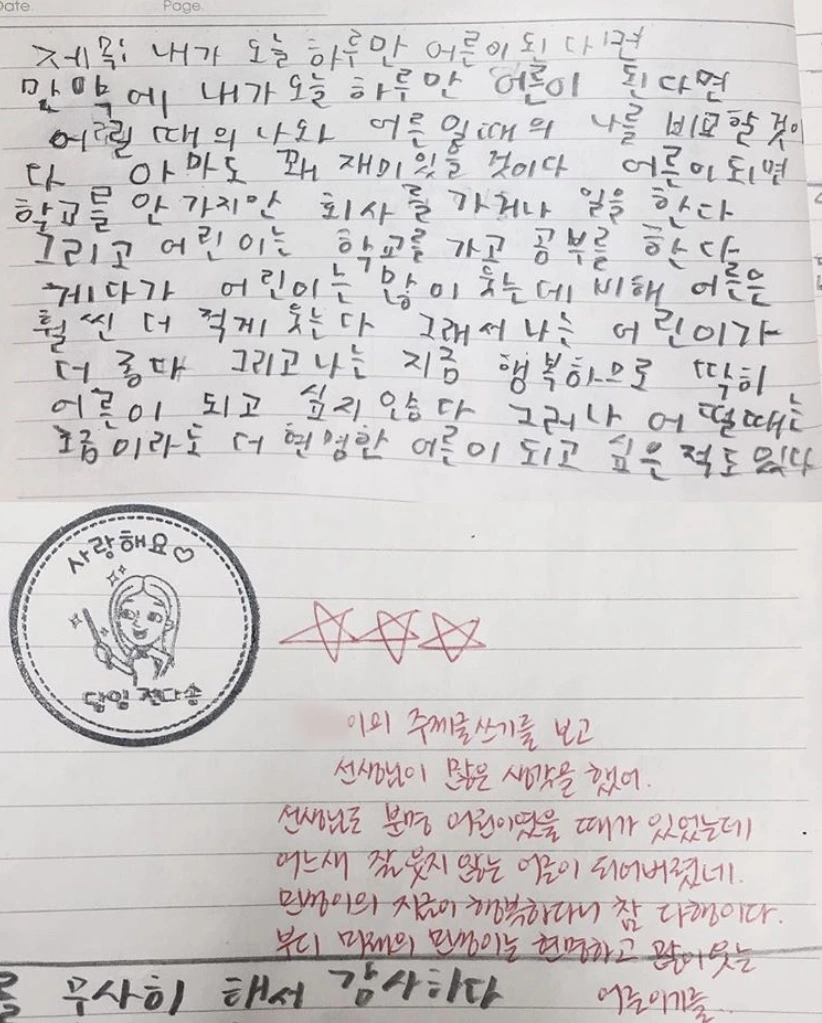 Date.
Page.
제목: 내가 오늘 하루만 어른이 된다면
만약에 내가 오늘 하루만 어른이 된다면
어릴 때의 나와 어른일때의 나를 비교할 것이
다 아마도 꽤 재미있을 것이다 어른이 되면
학교를 안 가지만 회사를 가거나 일을 한다
그리고 어린이는 학교를 가고 공부를 한다
게다가 어린이는 많이 웃는데 비해 어른은
훨씬 더 적게 웃는다 그래서 나는 어린이가
더 좋다 그리고 나는 지금 행복하므로 딱히
어른이 되고 싶지 않다 그러나 어떨때는
조금이라도 더 현명한 어른이 되고 싶은 적도 있다
사랑해요♡
담임 전다솜
이의 주제글쓰기를 보고
선생님이 많은 생각을 했어.
선생님도 분명 어린이였을 때가 있었는데
어느새 잘 웃지 않는 어른이 되어버렸네.
민쌩이의 지금이 행복하다니 참 다행이다.
부디 미래의 민쌩이는 현명하고 많이 웃는
어른이기를..
무사히 해서 감사하다